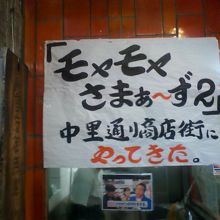 「モヤモヤ
さまぁ～ず2」
中里通り商店街に
やってきた。